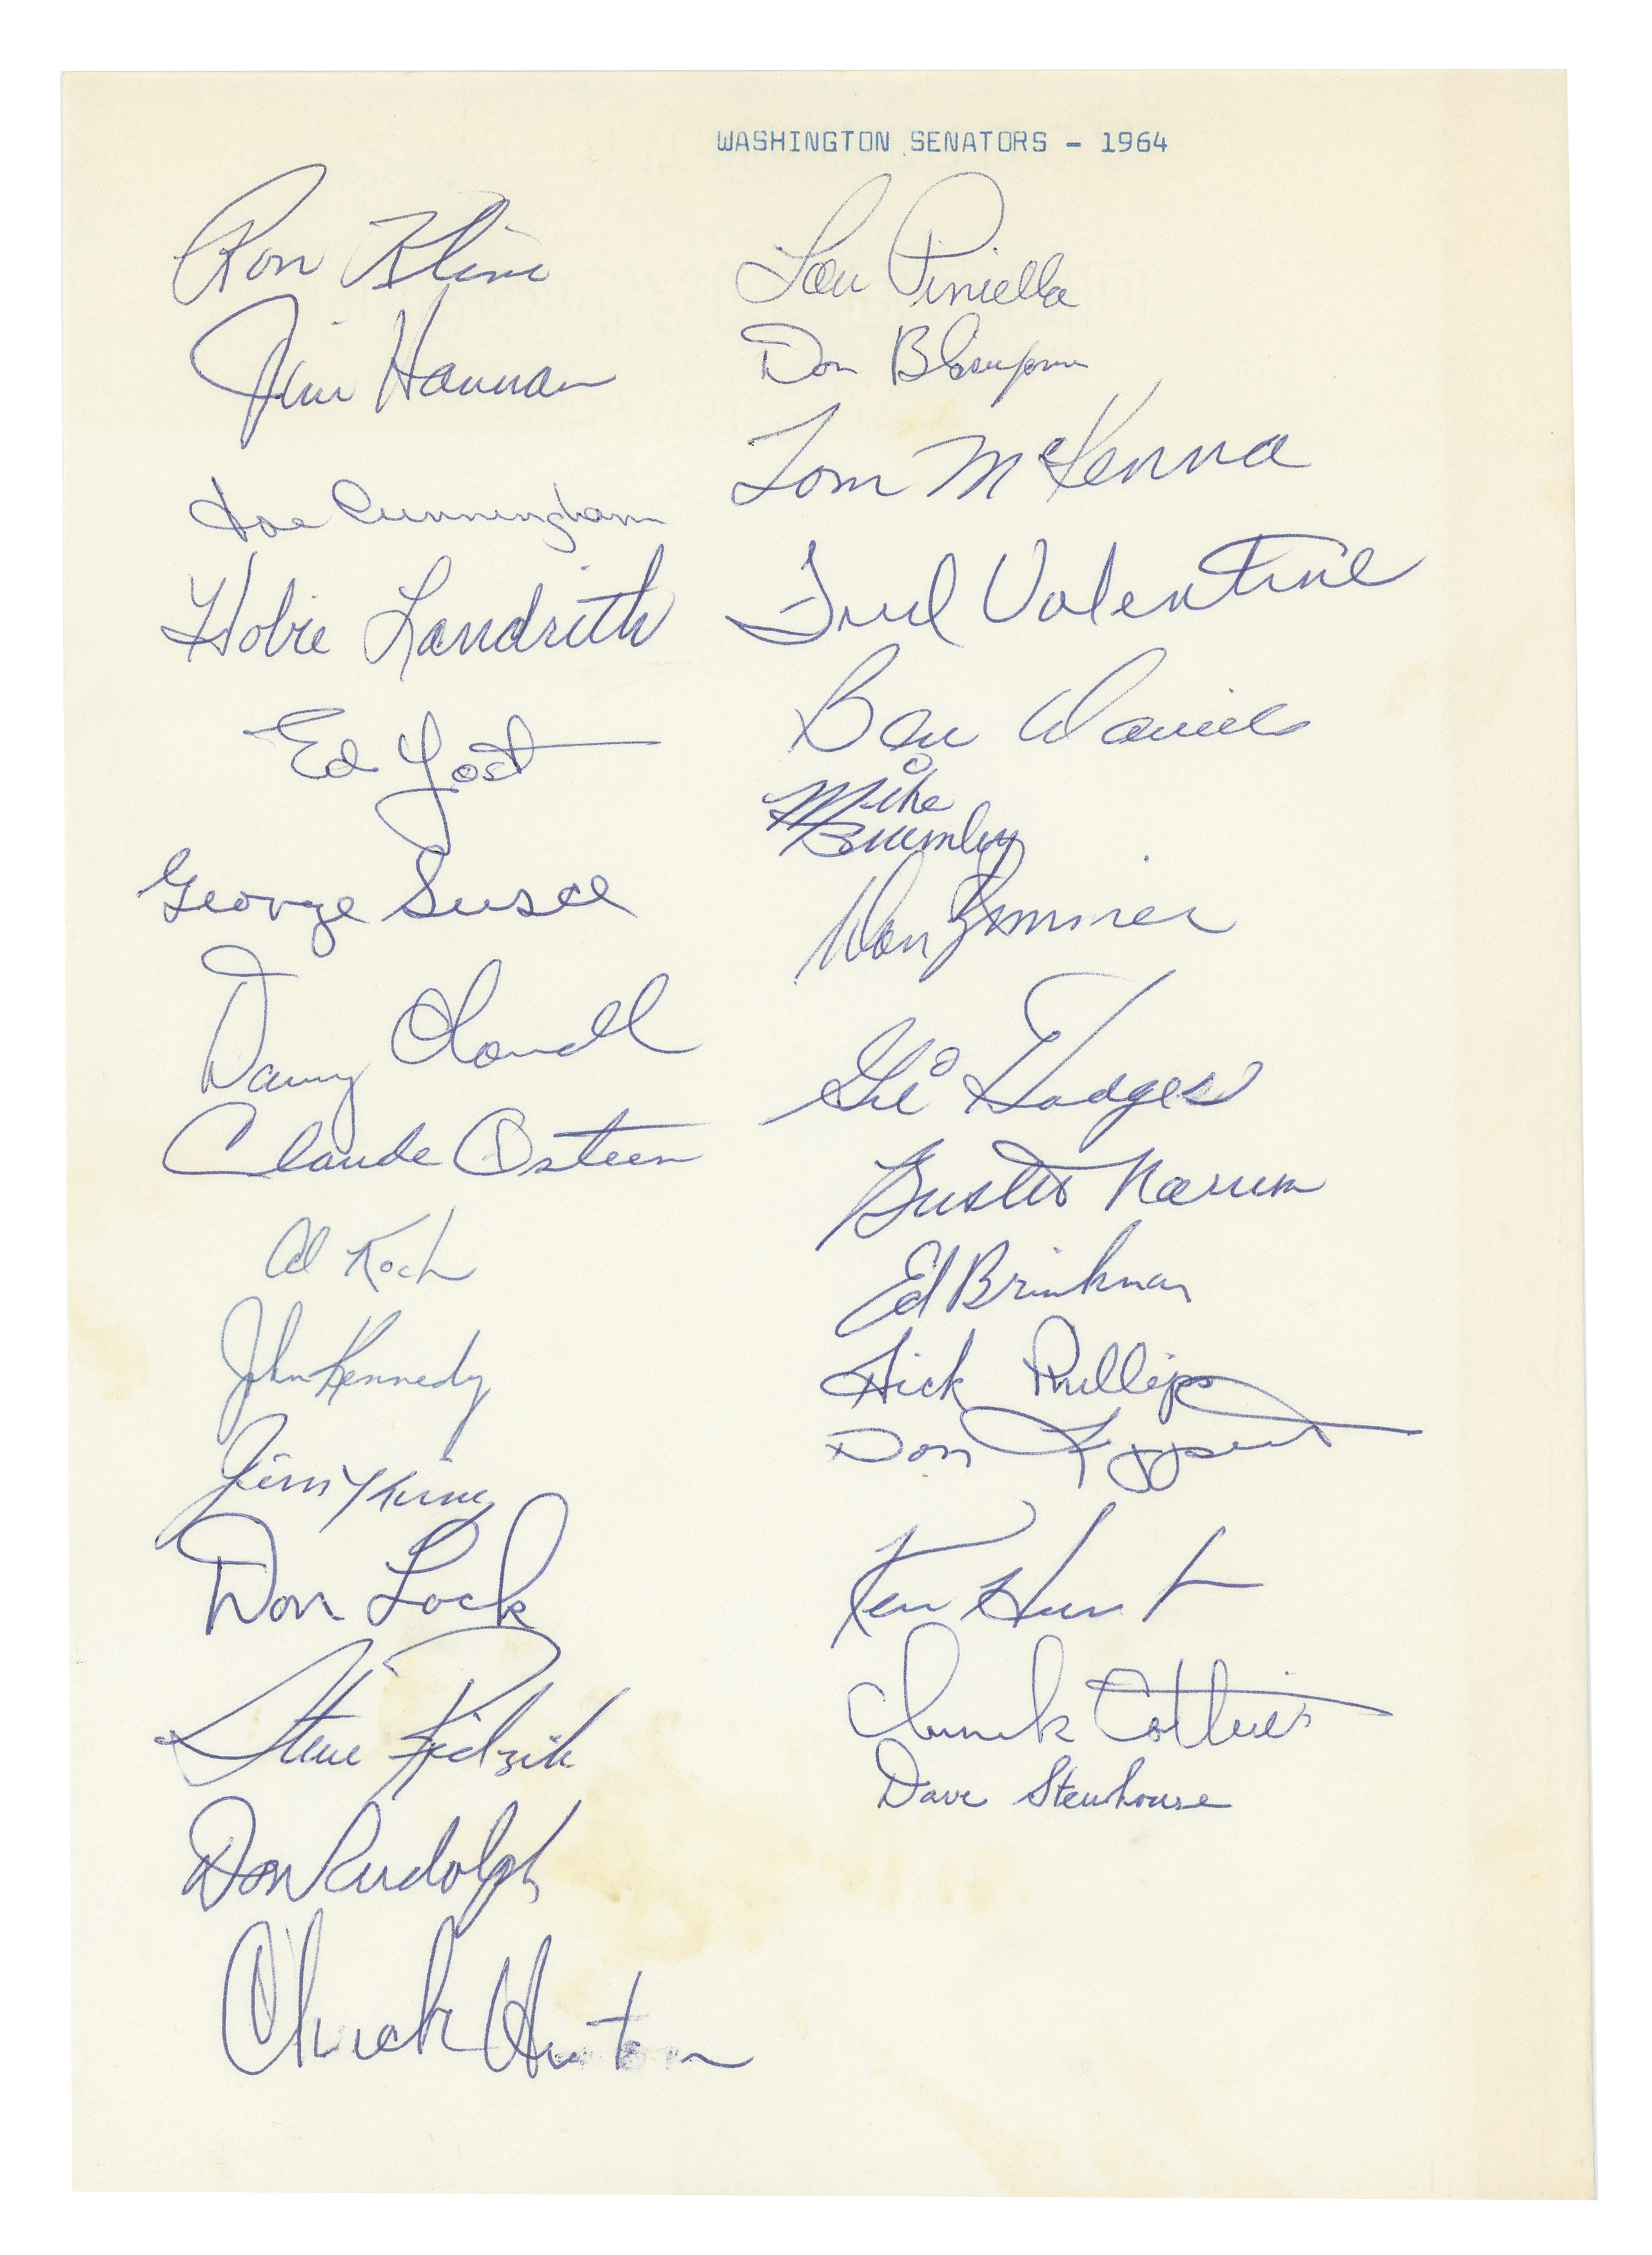 WASHINGTON SENATORS - 1964
Ron Kline
Jim Hannan
Joe Cunningham
Hobie Landrith
Ed Yost
George Susce
Danny O'Connell
Claude Osteen
Al Koch
John Kennedy
Jim King
Don Lock
Steve Ridzik
Don Rudolph
Chuck Hinton
Lou Piniella
Don Blasingame
Tom McKenna
Fred Valentine
Ben Daniels
Mike
Brumley
Don Zimmer
Gil Hodges
Buster Narum
Ed Brinkman
Dick Phillips
Don Leppert
Ken Hunt
Chuck Cottier
Dave Stenhouse